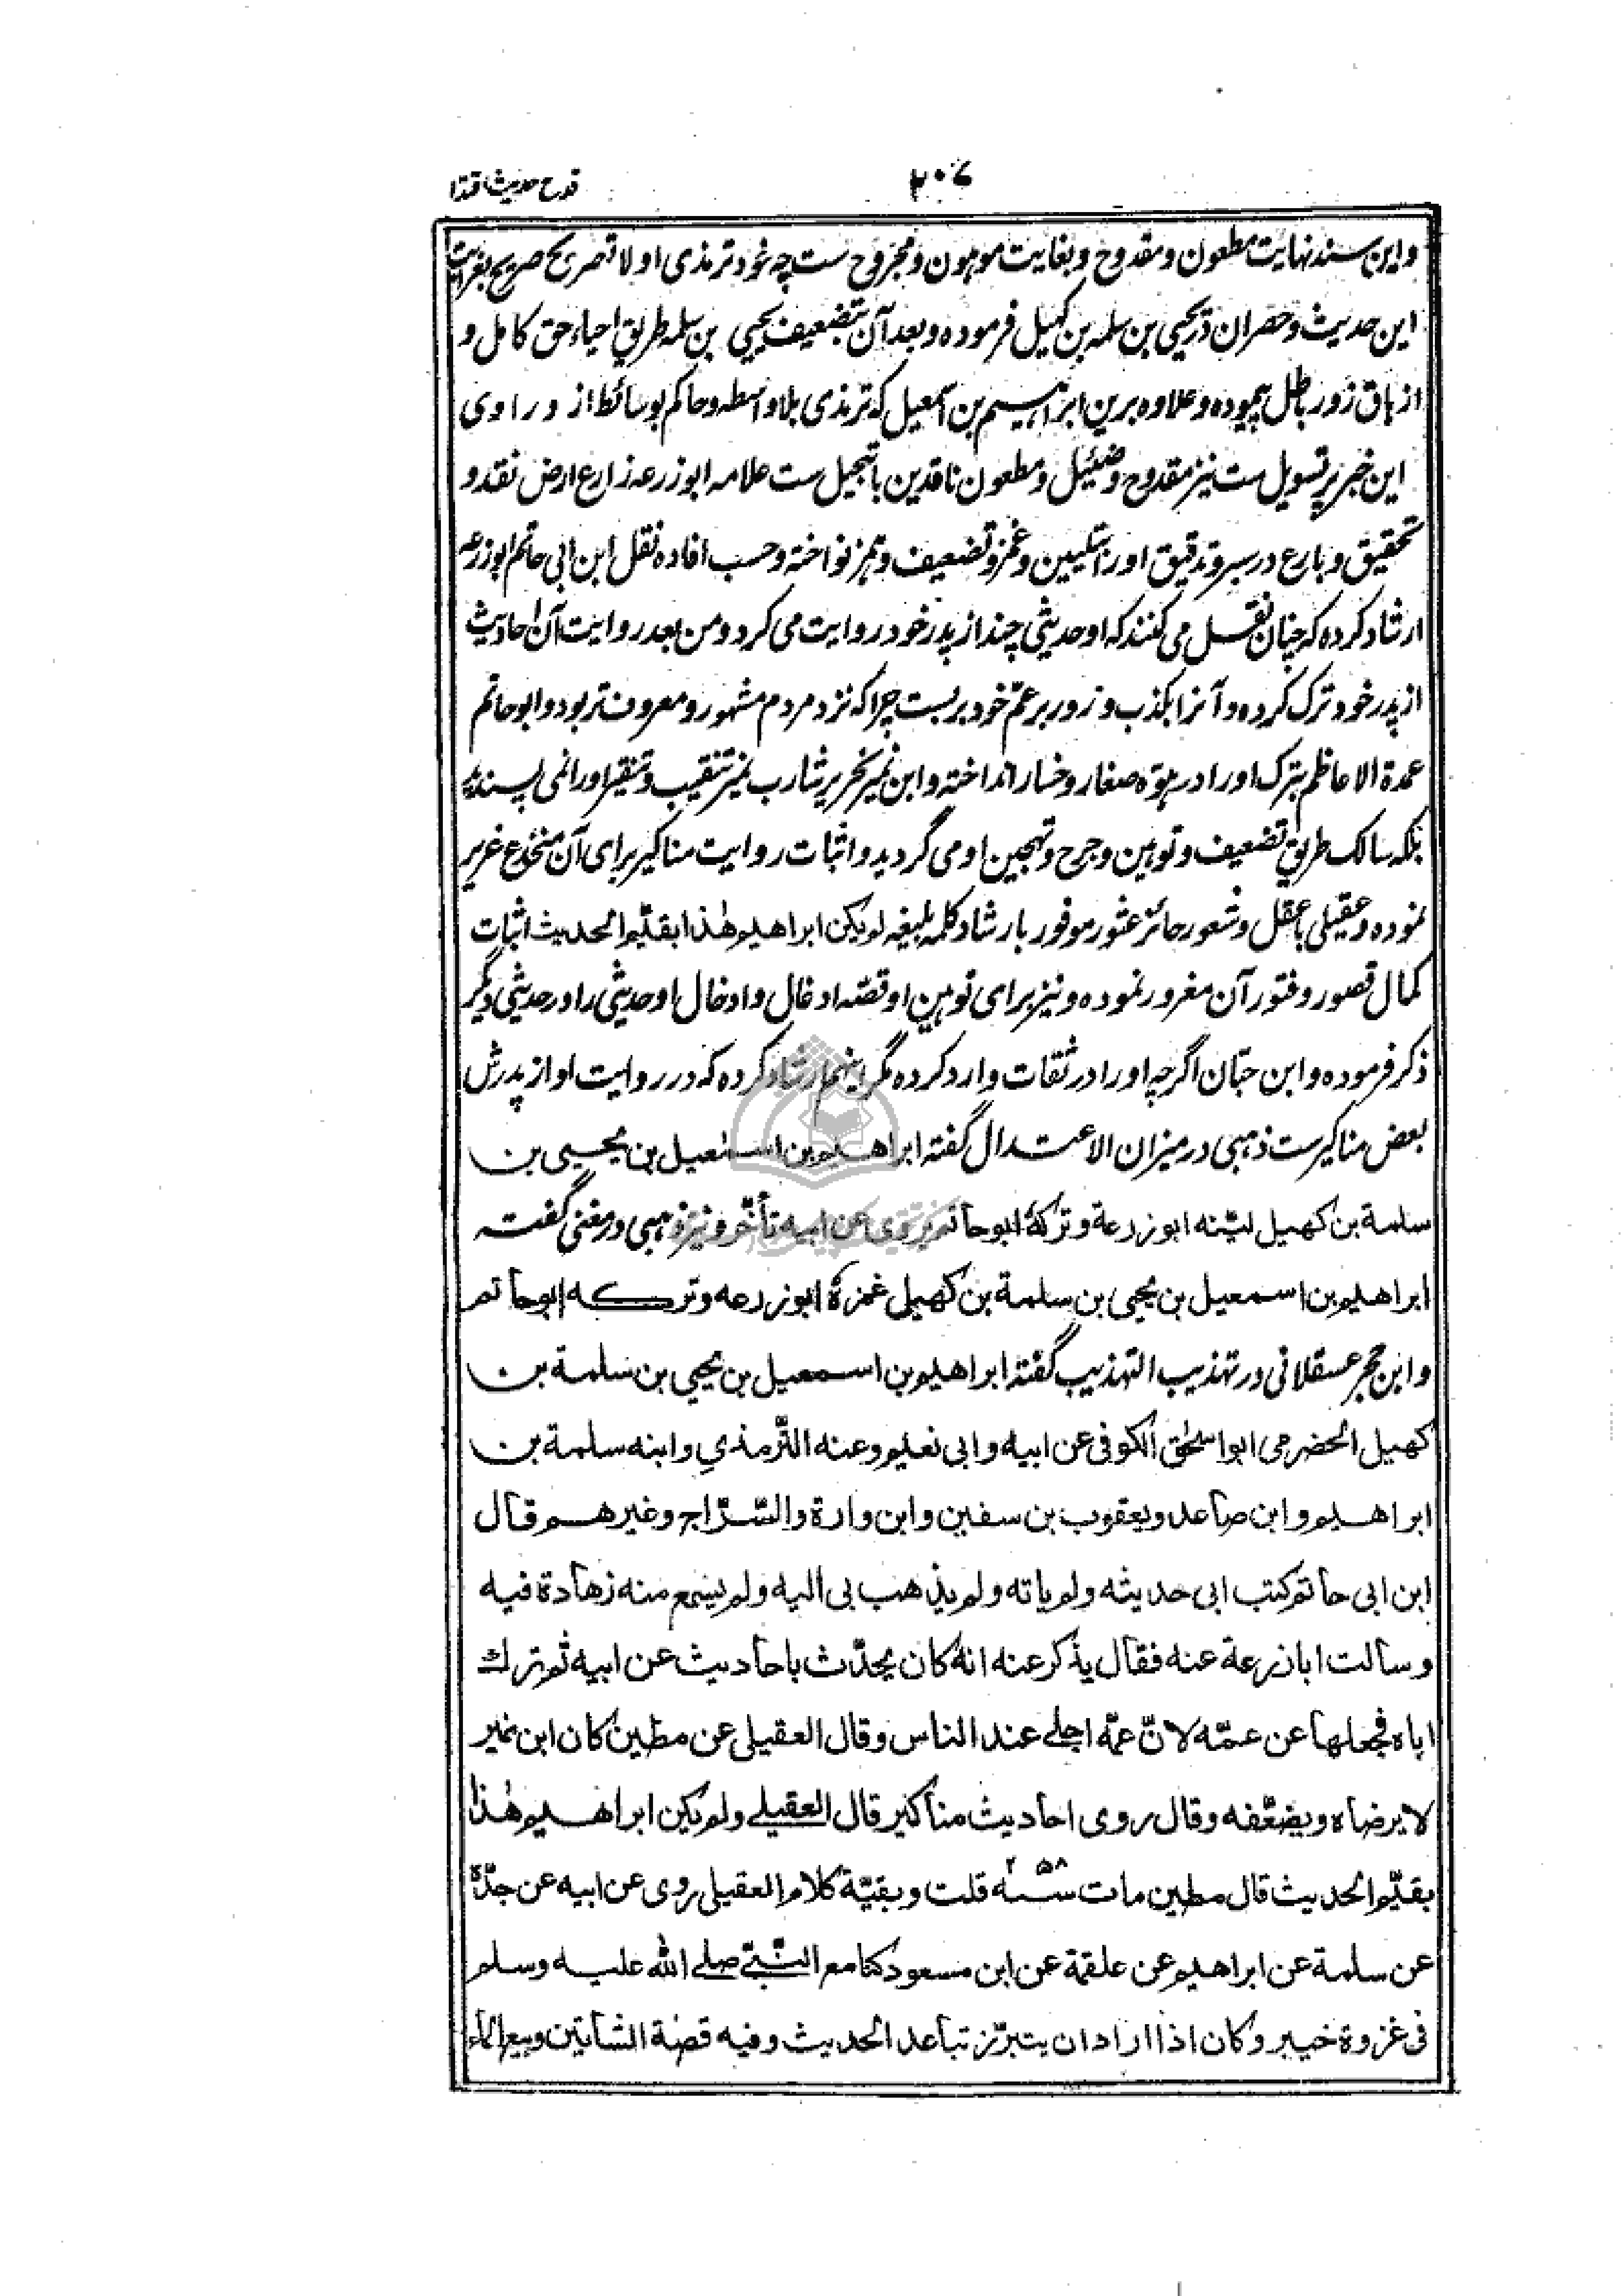 قدح حدیث اقتدا
۲۰۶
و این سند نهایت مطعون و مقدوح و بغایت موهون و مجروح ست چه خود ترمذی اولا تصریح صریح بغرابت
این حدیث و حصر ان در یحیی بن سلمه بن کهیل فرموده و بعد آن بتضعیف یحیی بن سلمه طریق احیاء حق کامل و
ازهاق زور باطل پیموده و علاوه برین ابراهیم بن اسمعیل که ترمذی بلا واسطه و حاکم بوسائط از و راوی
این خبر پر تسویل ست نیز مقدوح و ضئیل و مطعون ناقدین با تبجیل ست علامه ابو زرعه زارع ارض نقد و
تحقیق و بارع در سبر و تدقیق او را بتلیین و غمز و تضعیف و همز نواخته و حسب افاده نقل ابن ابی حاتم ابو زرعه
ارشاد کرده که چنان نقل می کنند که او حدیثی چند از پدر خود روایت می کرد و من بعد روایت آن احادیث
از پدر خود ترک کرده و آنرا بکذب و زور بر عمّ خود بربست چرا که نزد مردم مشهور و معروف تر بود و ابو حاتم
عمدة الاعاظم بترک او را در هوّه صغار و خسار انداخته و ابن نمیر نحریر شارب نمیر تنقیب و تنقیر او را نمی پسندید
بلکه سالک طریق تضعیف و توهین و جرح و تهجین او می گردید و اثبات روایت مناکیر برای آن منخدع غریر
نموده و عقیلی با عقل و شعور حائز عثور موفور بارشاد کلمه بلیغه لم یکن ابراهیم هذا بقیّم الحدیث اثبات
کمال قصور و فتور آن مغرور نموده و نیز برای توهین او قصّه ادغال و ادخال او حدیثی را در حدیثی دیگر
ذکر فرموده و ابن حبّان اگرچه او را در ثقات وارد کرده مگر اینهم ارشاد کرده که در روایت او از پدرش
بعض مناکیر ست ذهبی در میزان الاعتدال گفته ابراهیم بن اسمعیل بن یحیی بن
سلمة بن کهیل لیّنه ابو زرعة و ترکه ابو حاتم یروی عن ابیه تأخّر و نیز ذهبی در مغنی گفته
ابراهیم بن اسمعیل بن یحیی بن سلمة بن کهیل غمزه ابو زرعه و ترکه ابو حاتم
و ابن حجر عسقلانی در تهذیب التهذیب گفته ابراهیم بن اسمعیل بن یحیی بن سلمة بن
کهیل الحضرمی ابو اسحٰق الکوفی عن ابیه و ابی نعیم و عنه التّرمذی و ابنه سلمة بن
ابراهیم و ابن صاعد و یعقوب بن سفین و ابن وارة والسّرّاج و غیرهم قال
ابن ابی حاتم کتب ابی حدیثه و لم یاته و لم یذهب بی الیه و لم یسمع منه زهادة فیه
و سالت ابا زرعة عنه فقال یذکر عنه انه کان یحدّث باحادیث عن ابیه ثم ترک
اباه فجعلها عن عمّه لانّ عمّه اجلی عند الناس و قال العقیلی عن مطین کان ابن نمیر
لا یرضاه و یضعّفه و قال روی احادیث مناکیر قال العقیلی و لم یکن ابراهیم هٰذا
بقیّم الحدیث قال مطین مات سنه ۲۵۸ قلت و بقیّة کلام العقیلی روی عن ابیه عن جدّه
عن سلمة عن ابراهیم عن علقمة عن ابن مسعود کنا مع النّبیّ صلی الله علیه وسلم
فی غزوة خیبر و کان اذا اراد ان یتبرّز تباعد الحدیث و فیه قصّة الشأتین و